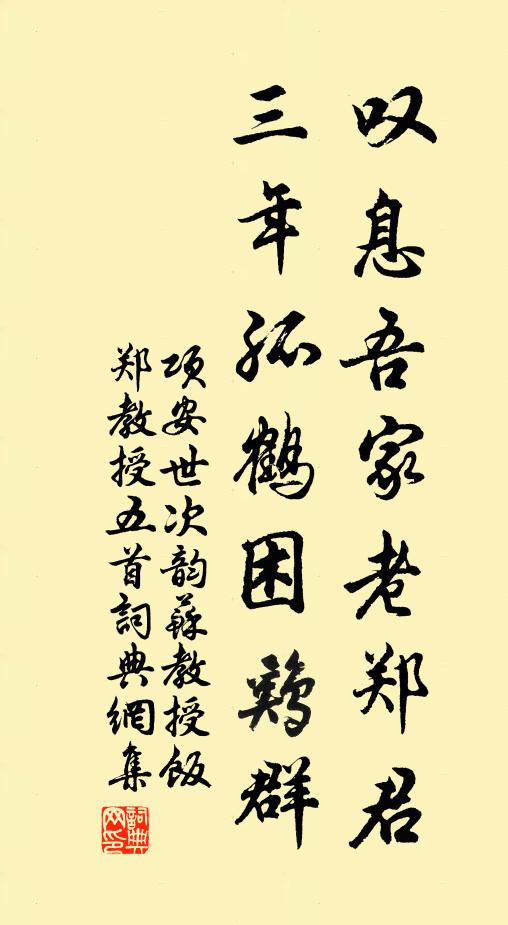 叹息吾家老郑君
三年孤鹤困鸡群
项安世次韵苏教授饭
郑教授五首詞典網集
詞典
网印